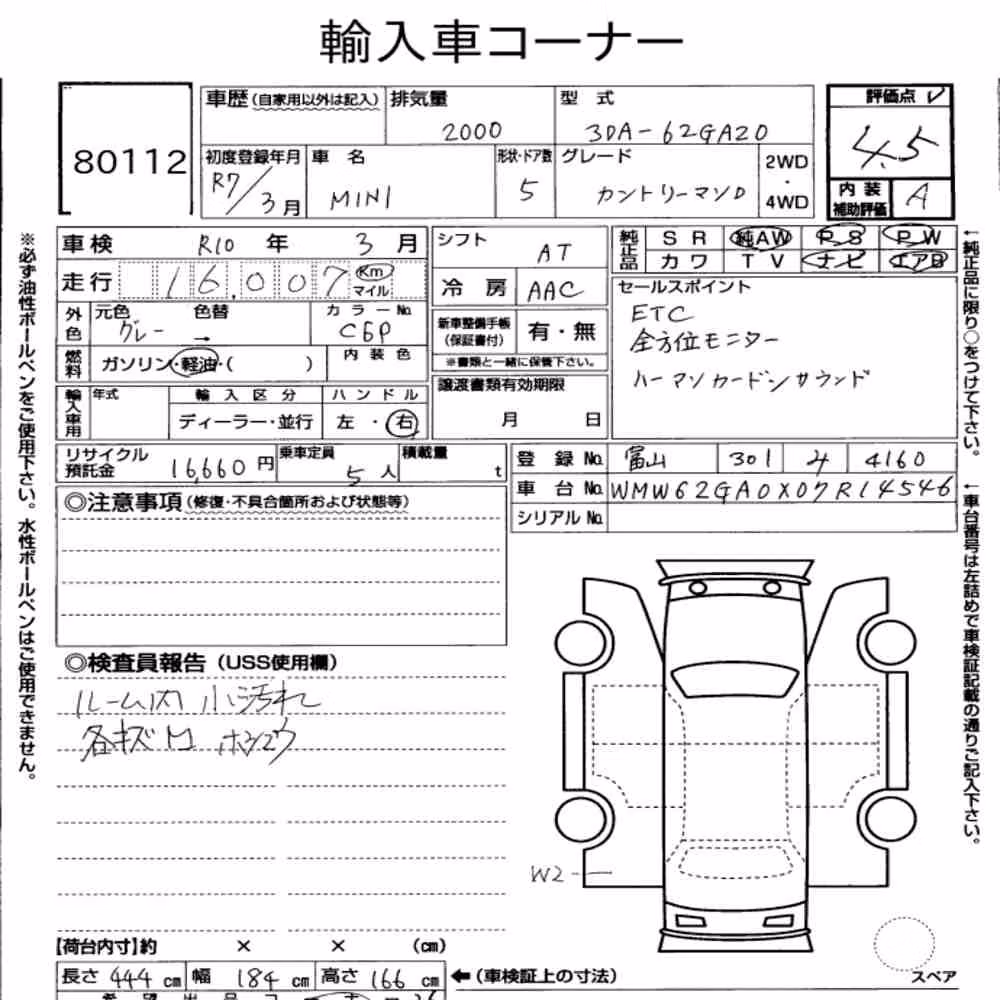 輸入車コーナー
80112
車歴(自家用以外は記入) 排気量 2000 型式 3DA-62GA20
評価点 4.5
初度登録年月 R7/3月 車名 MINI 形状・ドア数 5 グレード カントリーマンD 2WD・4WD
内装補助評価 A
車検 R10年 3月
走行 16,007 Km マイル
シフト AT
冷房 AAC
純正品 SR 純AW PS PW
カワ TV ナビ エアB
外色 元色 グレー 色替 → カラーNo. C6P
燃料 ガソリン・軽油・( ) 内装色
新車整備手帳(保証書付) 有・無
※書類と一緒に保管下さい。
セールスポイント
ETC
全方位モニター
ハーマンカードンサウンド
輸入車用 年式 輸入区分 ディーラー・並行 ハンドル 左・右
譲渡書類有効期限 月 日
リサイクル預託金 16,660円 乗車定員 5人 積載量 t
登録No. 富山 301 4160
車台No. WMW62GA0X07R14546
シリアルNo.
◎注意事項(修復・不具合箇所および状態等)
◎検査員報告(USS使用欄)
ルーム内 小汚れ
各キズ
W2
【荷台内寸】約 × × (cm)
長さ 444cm 幅 184cm 高さ 166cm
←(車検証上の寸法)
スペア
※必ず油性ボールペンをご使用下さい。水性ボールペンはご使用できません。
←純正品に限り○をつけて下さい。
←車台番号は左詰めで車検証記載の通りご記入下さい。